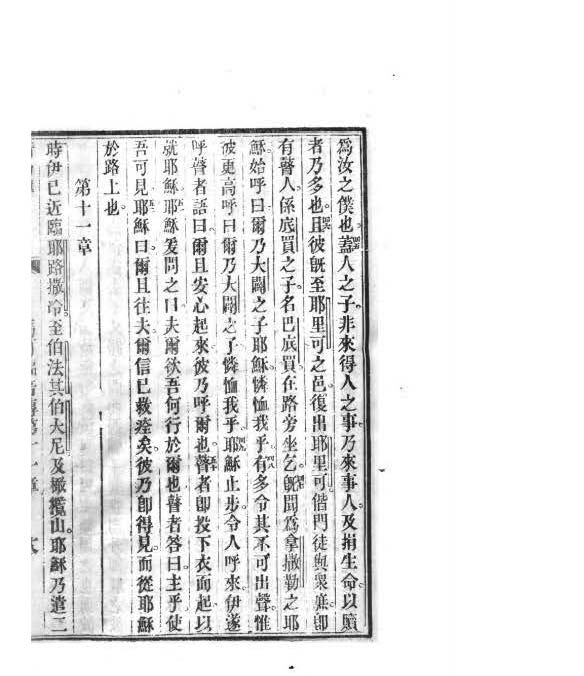 為汝之僕也蓋人之子非來得人之事乃來事人及捐生命以贖
者乃多也且彼旣至耶里可之邑復出耶里可偕門徒與衆庶卽
有瞽人係底買之子名巴底買在路旁坐乞旣聞為拿撒勒之耶
穌始呼曰爾乃大闢之子耶穌憐恤我乎有多令其不可出聲惟
彼更高呼曰爾乃大闢之子憐恤我乎耶穌止步令人呼來伊遂
呼瞽者語曰爾且安心起來彼乃呼爾也瞽者卽投下衣而起以
就耶穌耶穌爰問之曰夫爾欲吾何行於爾也瞽者答曰主乎使
吾可見耶穌曰爾且往夫爾信已救痊矣彼乃卽得見而從耶穌
於路上也
第十一章
時伊已近臨耶路撒冷至伯法其伯大尼及橄欖山耶穌乃遣二